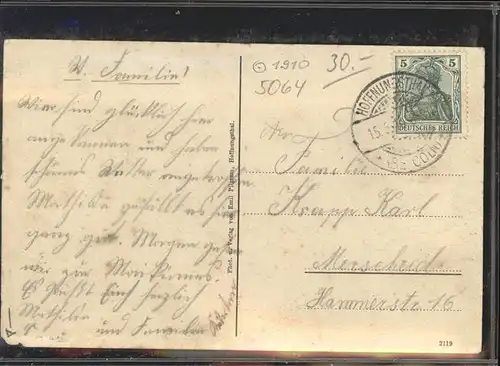 W. Familie!
Wir sind glücklich hier
angekommen und haben
schönes Wetter angetroffen
Mathilde gefällt es hier
ganz gut. Morgen gehen
wir zu
Es grüßt Euch herzlich
Mathilde
und
1910
5064
30.-
HOFFNUNGSTHAL
15.
5 5
DEUTSCHES REICH
An
Familie
Krapp Karl
Merscheid
Hammerstr. 16
Phot. u. Verlag von Emil Pilgram, Hoffnungsthal.
2119